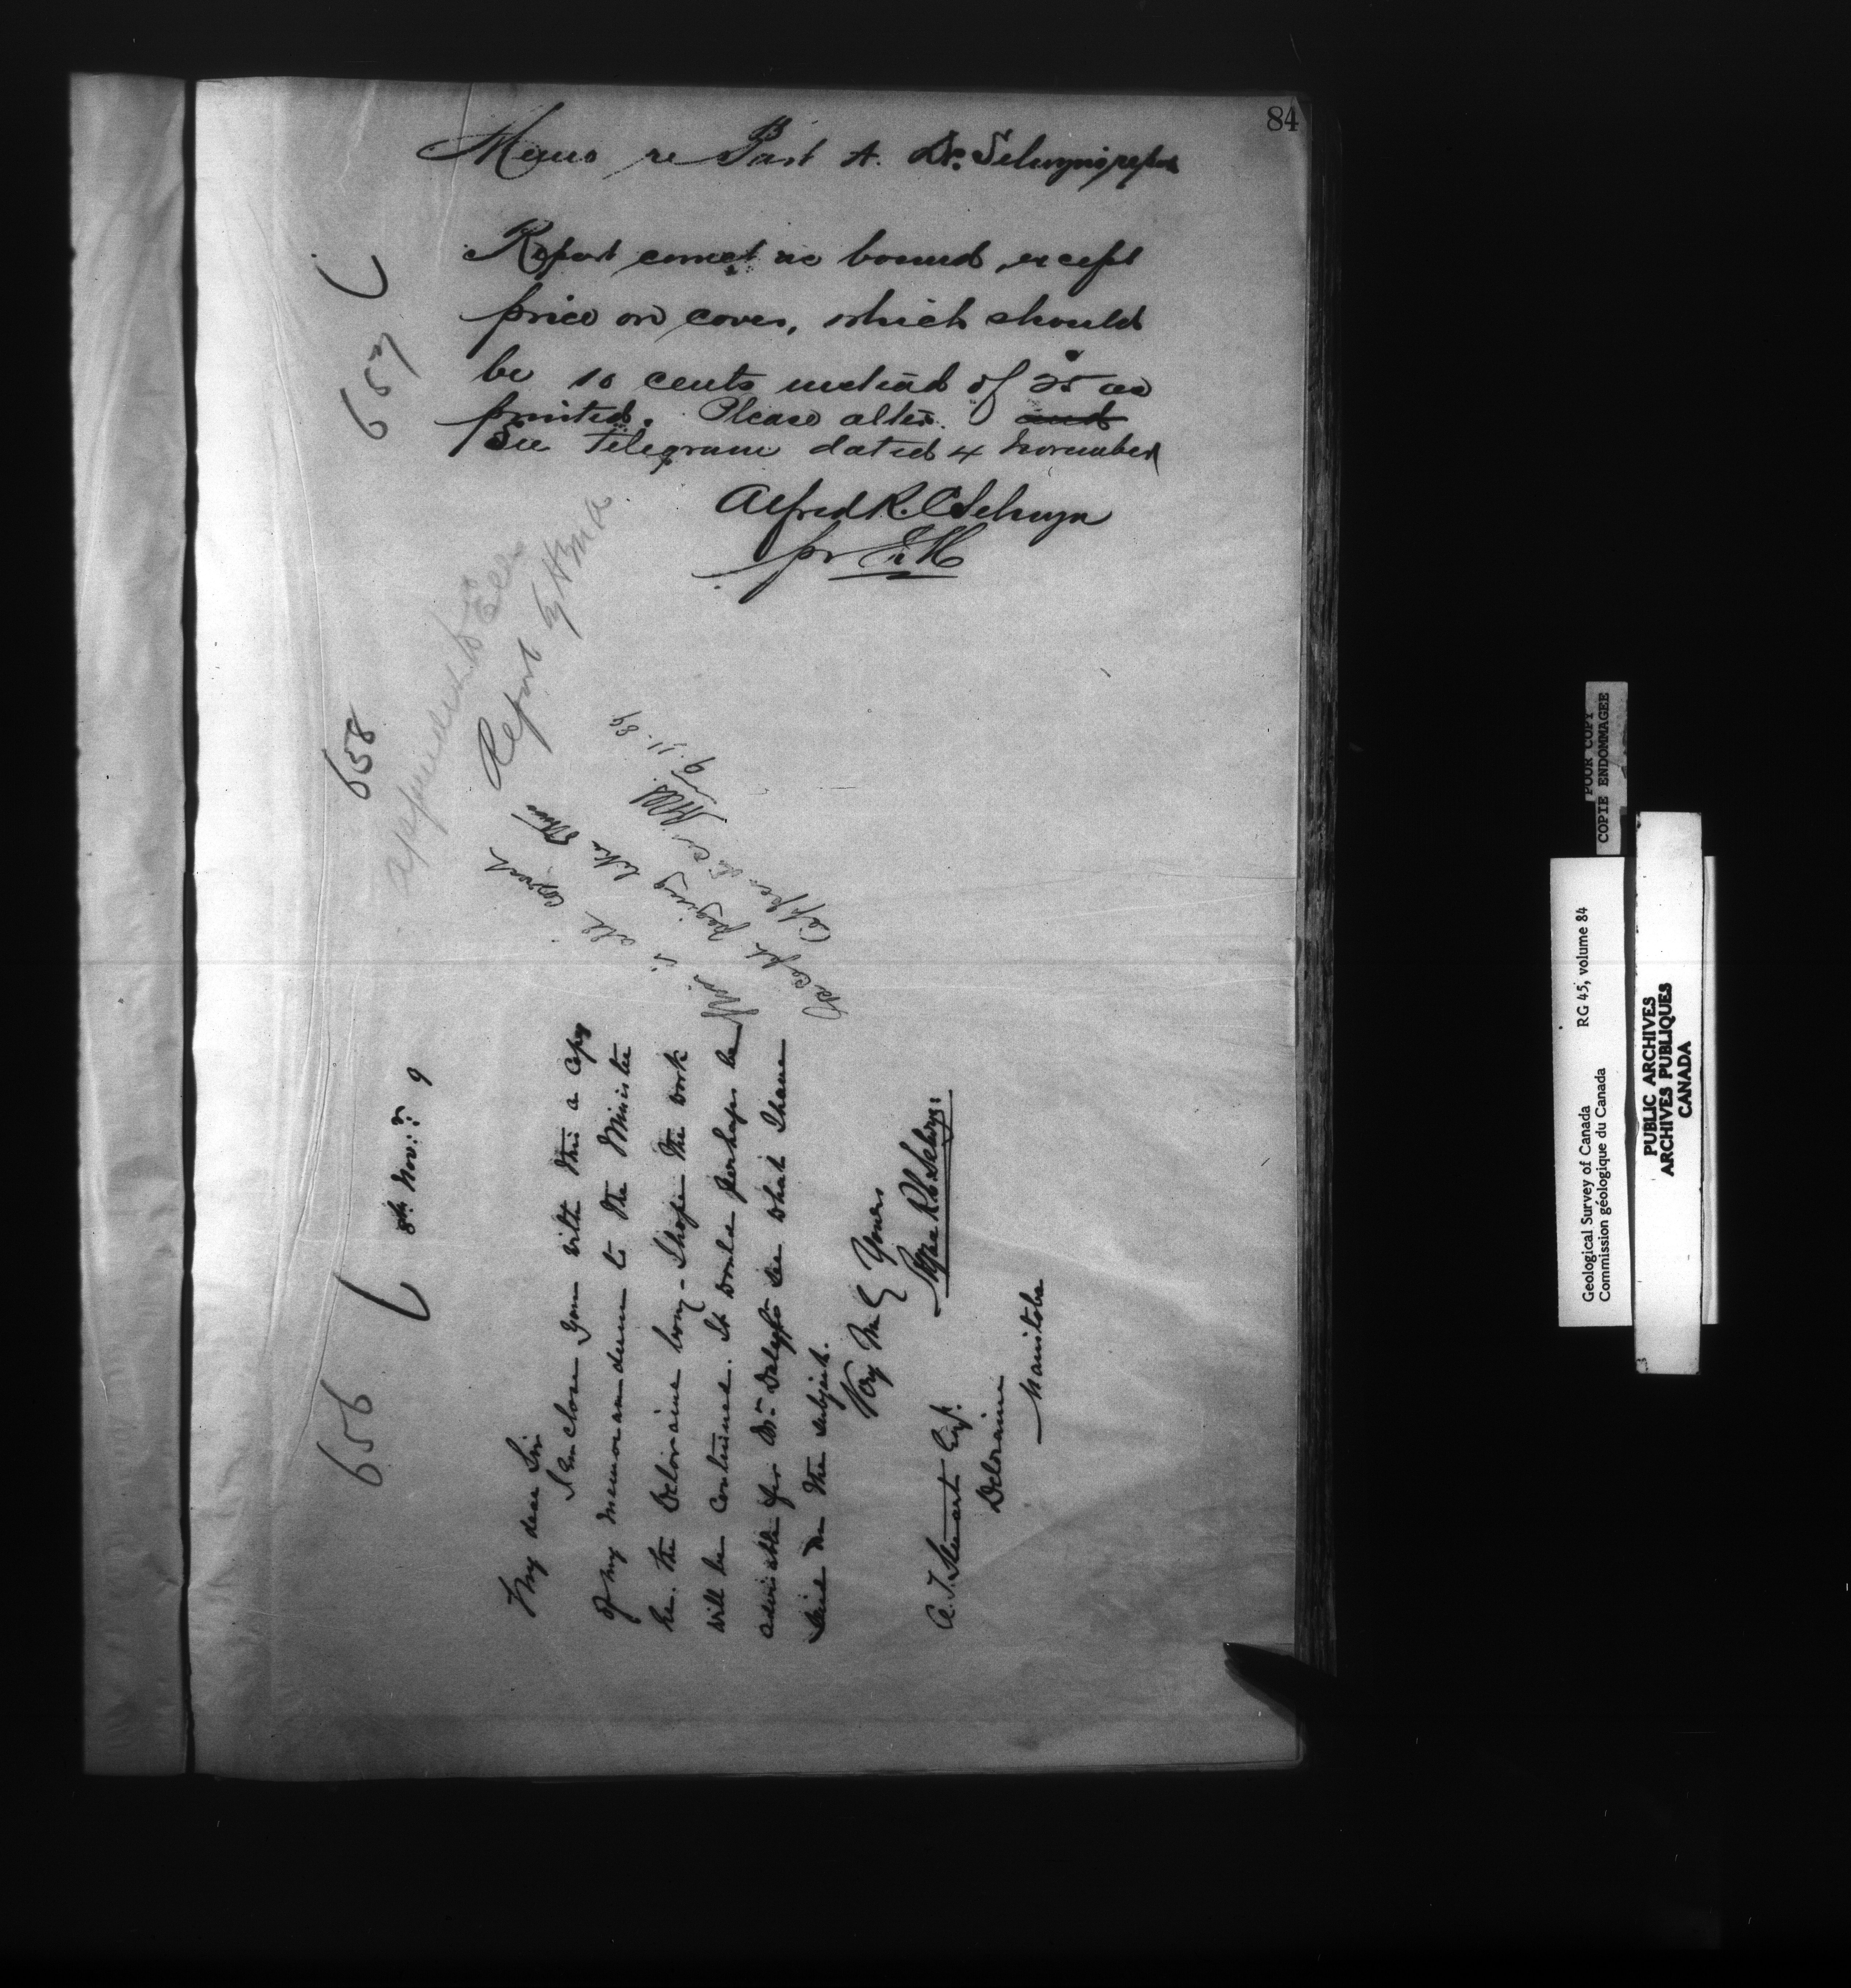 84
Memo re Part A. Dr. Selwyn's report
657
Report correct as bound, except
price on cover, which should
be 10 cents instead of 25 as
printed. Please alter. and
See Telegram dated 4 November
Alfred R. C Selwyn
pr
658
appendix to Ells
Report by HMA
is all correct
except paging like this
9-11-89
656
8th Novr. 9
My dear Sir
I enclose you with this a copy
of my memorandum to the Minister
re. the Deloraine boring - I hope the work
will be continued. It would perhaps be
advisable for Mr. Daly to see what I have
said on the subject.
Yours
Alfred R. C. Selwyn:
A. T. Stewart Esq.
Deloraine
Manitoba
POUR COPY
COPIE ENDOMMAGEE
Geological Survey of Canada RG 45, volume 84
Commission géologique du Canada
PUBLIC ARCHIVES
ARCHIVES PUBLIQUES
CANADA